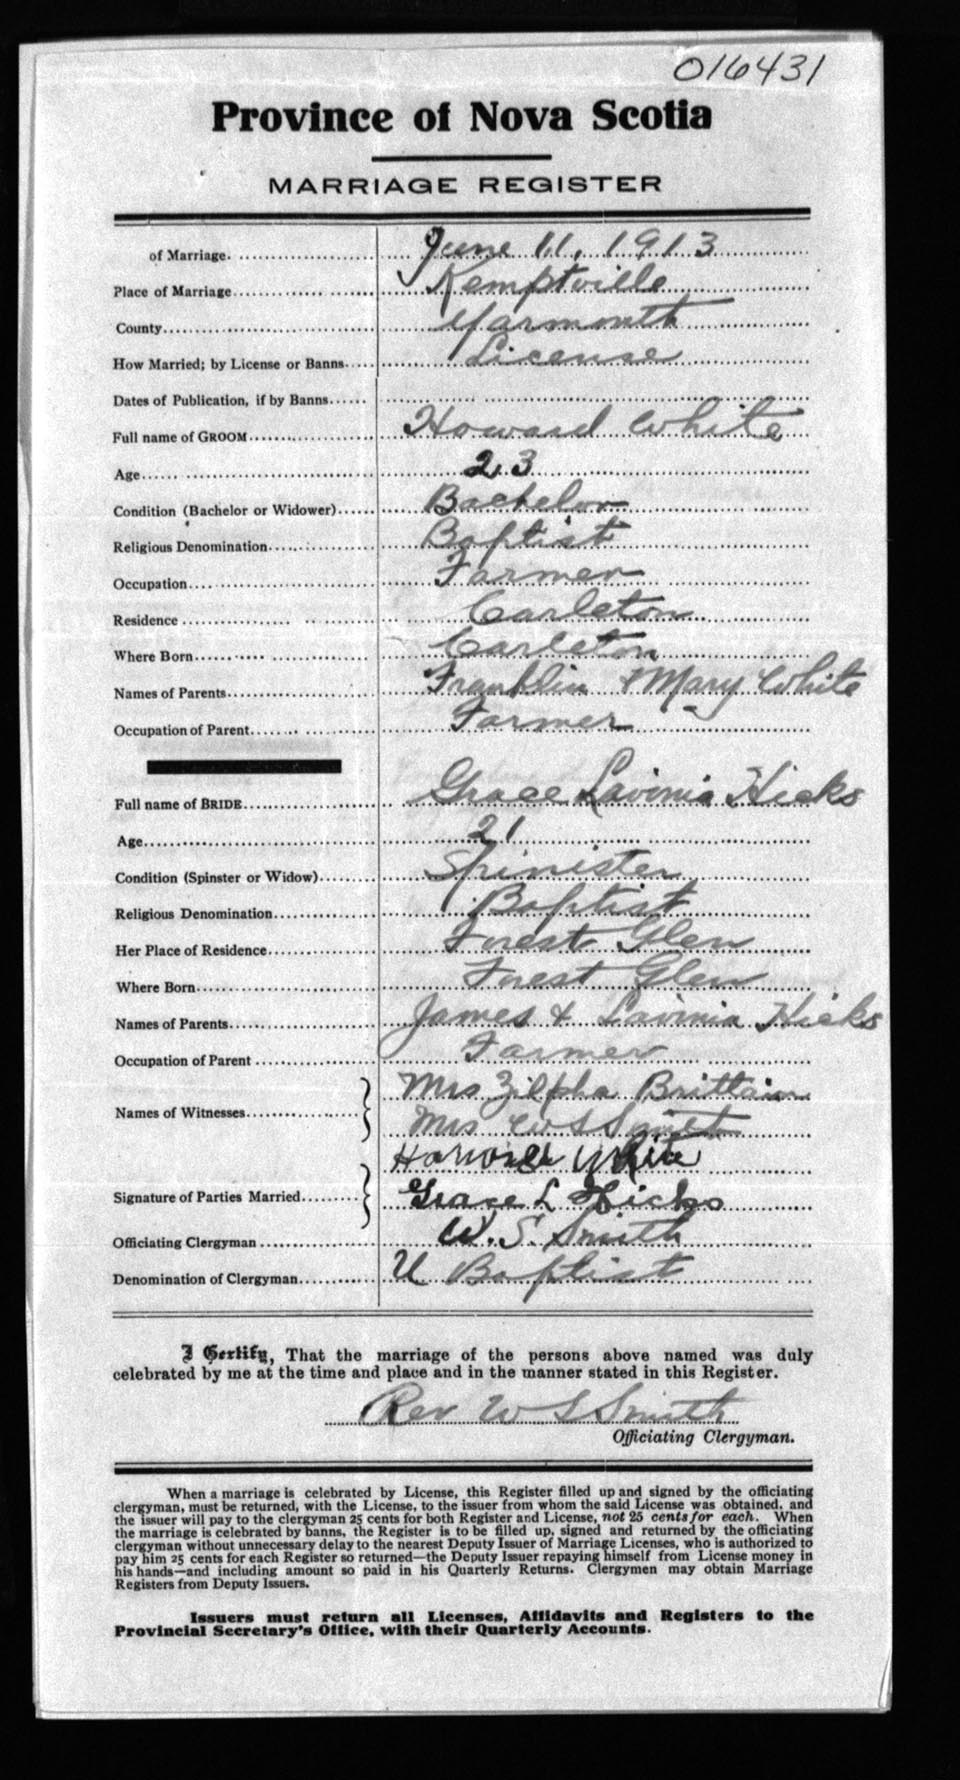 016431
Province of Nova Scotia
MARRIAGE REGISTER
of Marriage. June 11, 1913
Place of Marriage Kemptville
County Yarmouth
How Married; by License or Banns License
Dates of Publication, if by Banns
Full name of GROOM Howard White
Age 23
Condition (Bachelor or Widower) Bachelor
Religious Denomination Baptist
Occupation Farmer
Residence Carleton
Where Born Carleton
Names of Parents Franklin & Mary White
Occupation of Parent Farmer
Full name of BRIDE Grace Lavinia Hicks
Age 21
Condition (Spinster or Widow) Spinister
Religious Denomination Baptist
Her Place of Residence Forest Glen
Where Born Forest Glen
Names of Parents James & Lavinia Hicks
Occupation of Parent Farmer
Names of Witnesses Mrs Zilpha Brittain
Mrs W S Smith
Signature of Parties Married Howard White
Grace L Hicks
Officiating Clergyman W. S. Smith
Denomination of Clergyman U Baptist
I Certify, That the marriage of the persons above named was duly
celebrated by me at the time and place and in the manner stated in this Register.
Rev W S Smith
Officiating Clergyman.
When a marriage is celebrated by License, this Register filled up and signed by the officiating
clergyman, must be returned, with the License, to the issuer from whom the said License was obtained, and
the issuer will pay to the clergyman 25 cents for both Register and License, not 25 cents for each. When
the marriage is celebrated by banns, the Register is to be filled up, signed and returned by the officiating
clergyman without unnecessary delay to the nearest Deputy Issuer of Marriage Licenses, who is authorized to
pay him 25 cents for each Register so returned—the Deputy Issuer repaying himself from License money in
his hands—and including amount so paid in his Quarterly Returns. Clergymen may obtain Marriage
Registers from Deputy Issuers.
Issuers must return all Licenses, Affidavits and Registers to the
Provincial Secretary's Office, with their Quarterly Accounts.